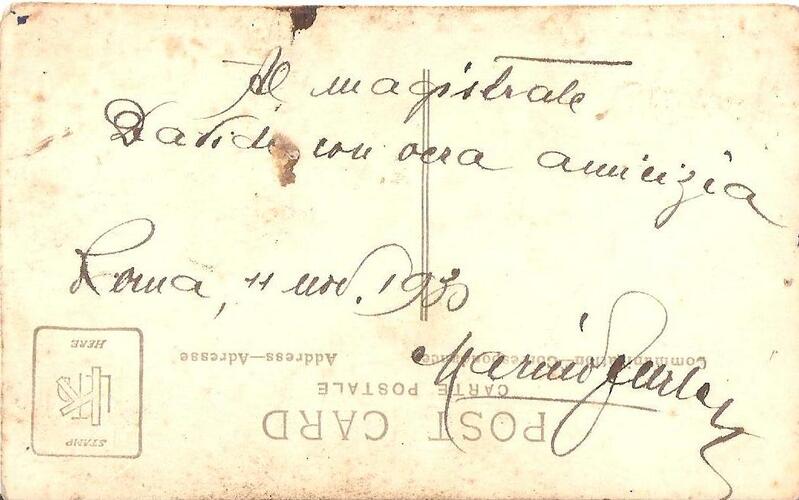 Al magistrale
Davide con vera amicizia
Roma, 11 nov. 1930
Mario
Communication—Correspondance
Address—Adresse
CARTE POSTALE
POST CARD
STAMP
HERE